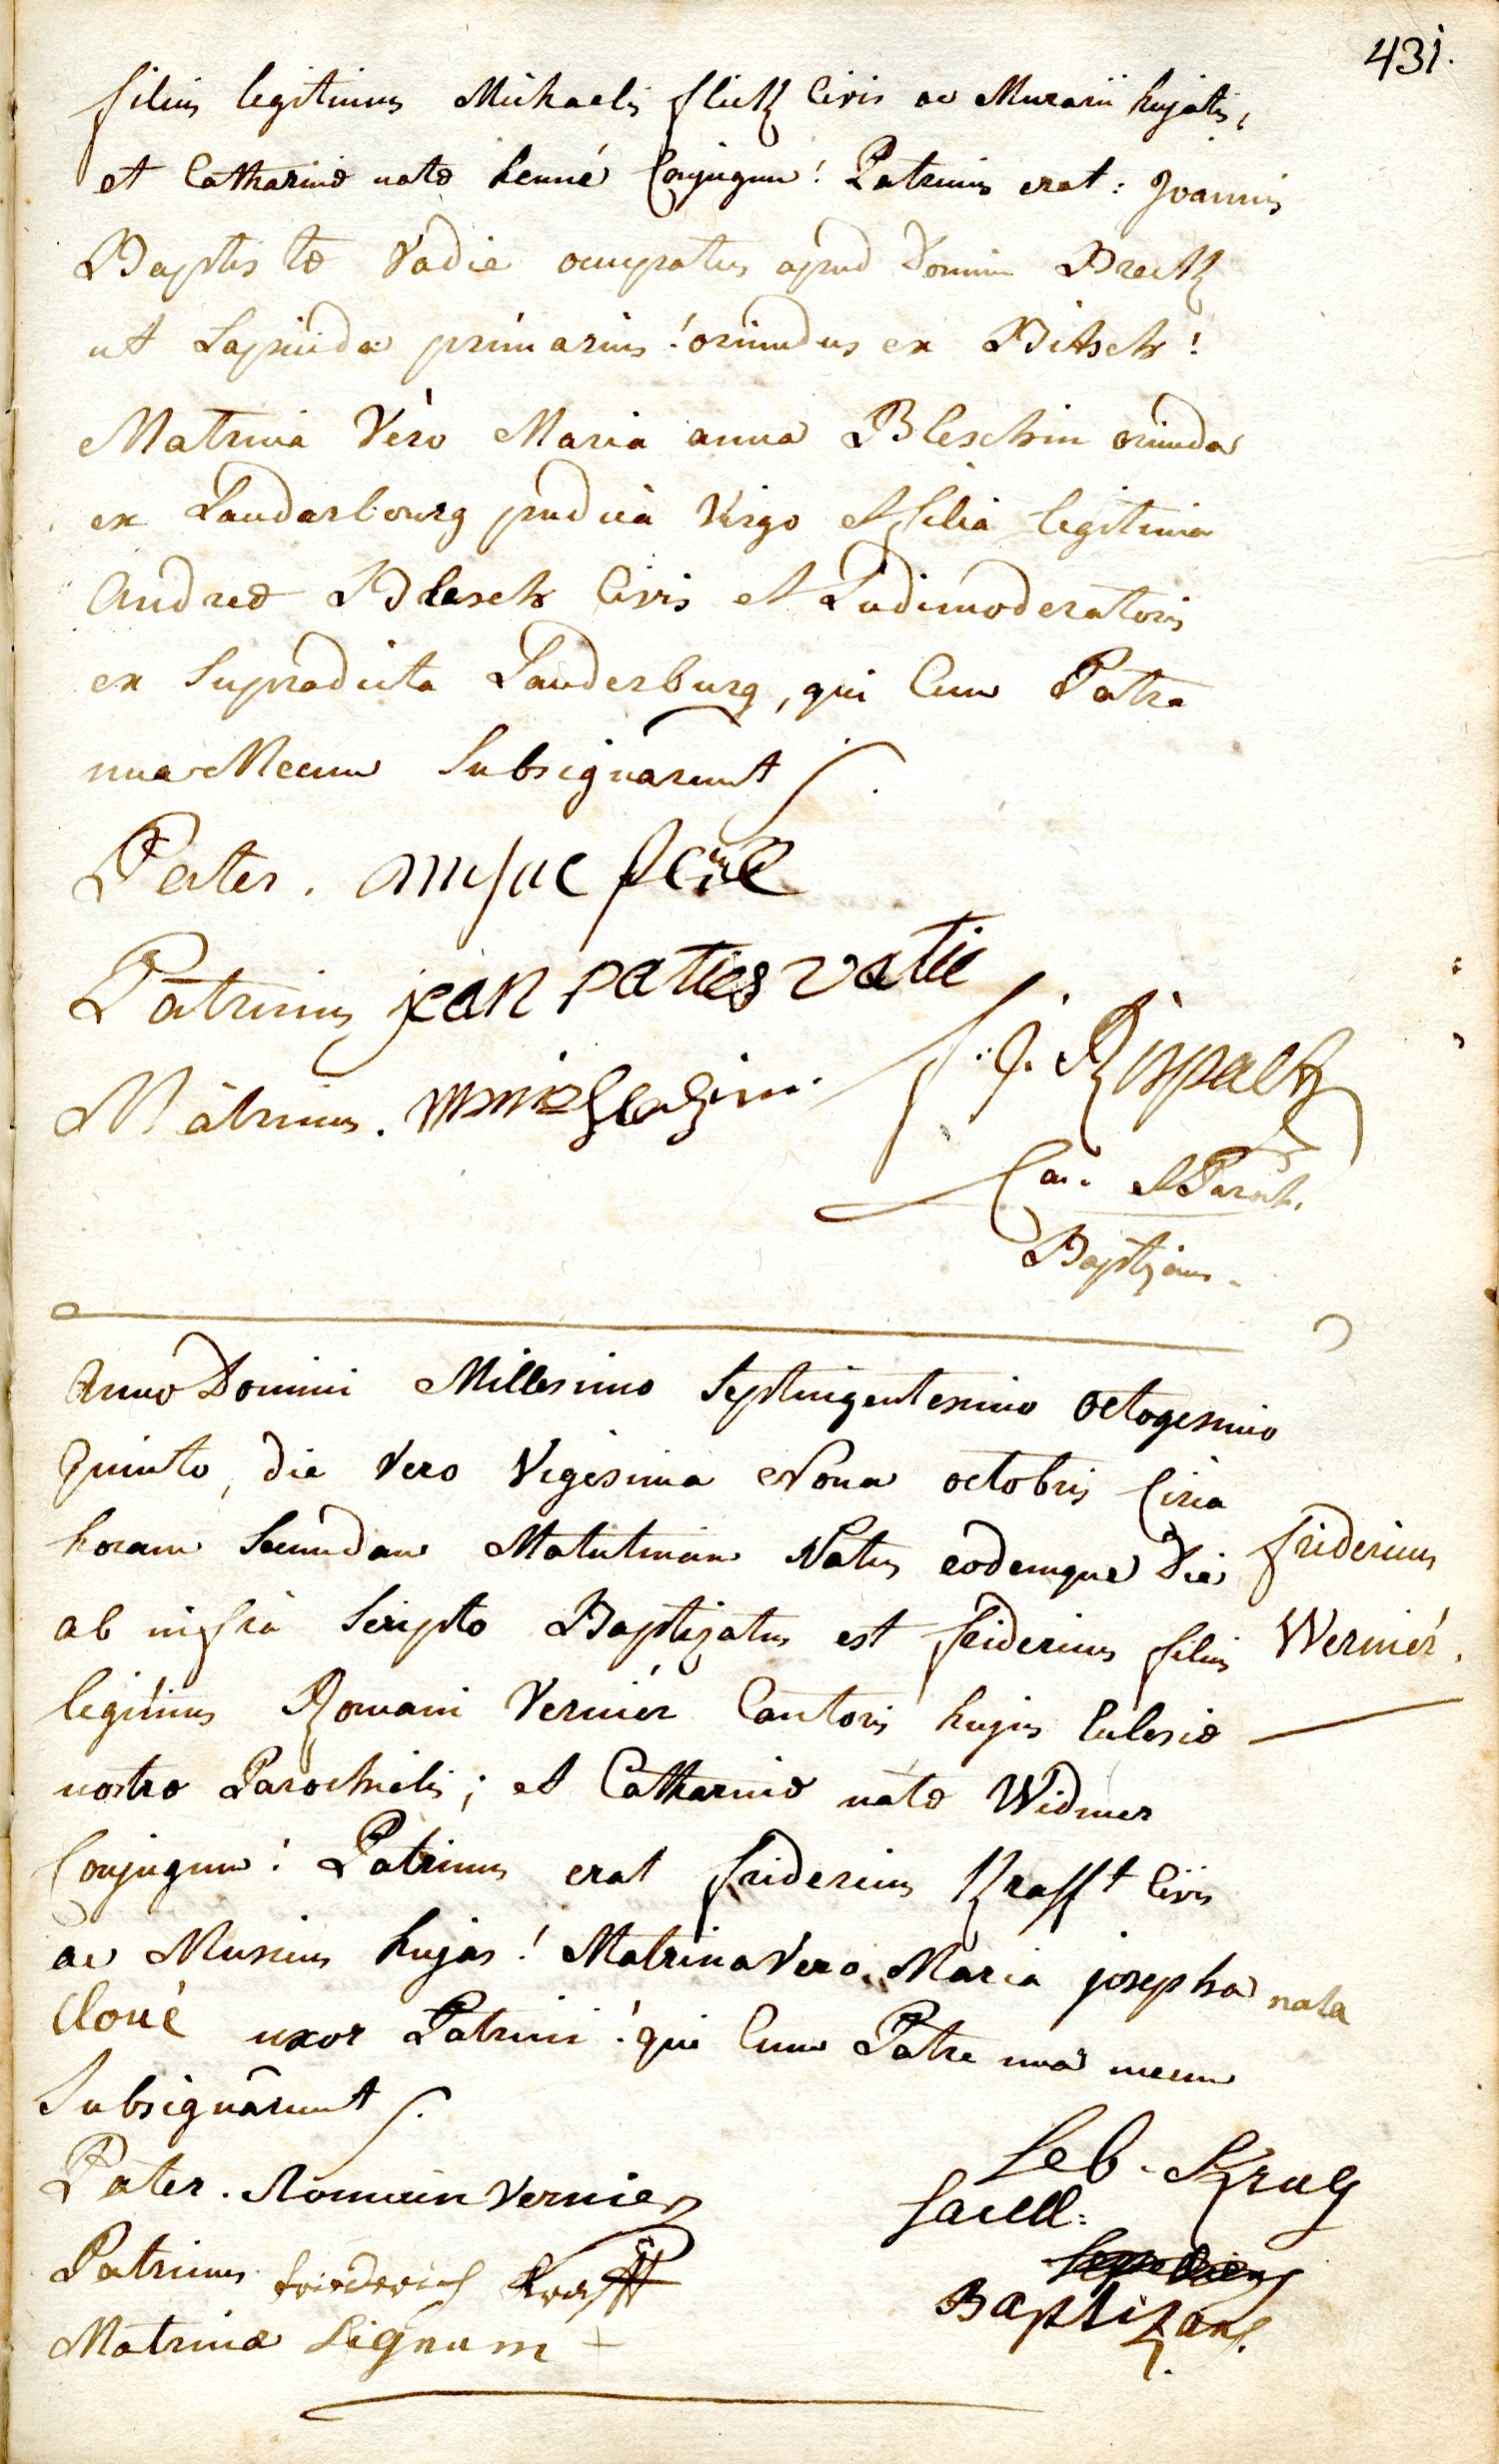 431.
filius legitimus Michaelis flick Civis ac Murarii hujatis,
et Catharinæ natæ henné Conjugum! Patrinus erat: Joannis
Baptistæ Vadie occupatus apud Domin
ut Lapicida primarius! oriundus ex Bitsch!
Matrina Vero Maria anna Bleschin oriunda
ex Lauderbourg pudica Virgo et filia legitima
Andreæ Blesch Civis et Ludimoderatoris
ex Supradicta Lauderburg, qui Cum Patre
una Mecum Subsignarunt
Pater.
Patrinus jean paties vatie
Matrina.
Can. Paroch.
Baptizans.
Anno Domini Millesimo Septingentesimo octogesimo
Quinto, die Vero Vigesima Nona octobris Circa
horam Secundam Matutinam Natus eodemque Die
ab infra Scripto Baptizatus est fridericus filius
legitimus Romani Vernier Cantoris hujus Eclesiæ
nostræ Parochialis; et Catharinæ natæ Widmer
Conjugum! Patrinus erat fridericus Krafft Civis
ac Musicus hujas! Matrina Vero Maria josepha nata
Cloué uxor Patrini! qui Cum Patre una mecum
Subsignarunt
fridericus
Wernier.
Pater. Romain Vernier
Patrinus friederich Krafft
Matrinæ Signum +
Seb. Krug
Sacell:
Baptizans.